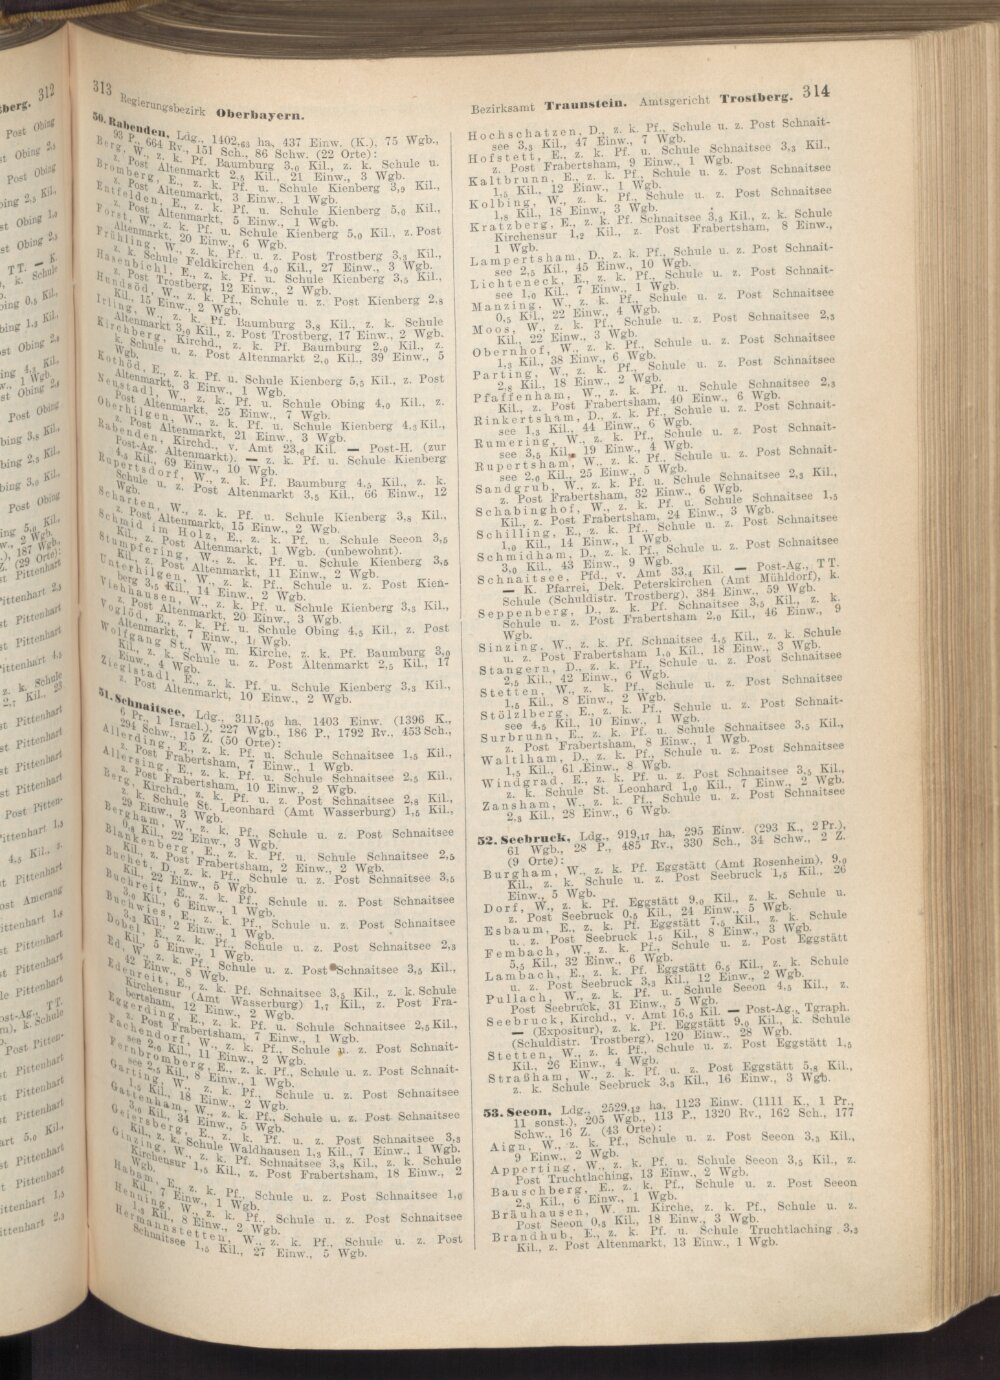 312
berg.
Post Obing
st Obing 2,5
Post Obing
bing 2,5 Kil.,
st Obing 1,0
st Obing 2,5
TT. — K.
, k. Schule
bing 0,5 Kil.,
bing 1,3 Kil.,
st Obing 2,0
ing 4,3 Kil.,
w., 1 Wgb.
st Obing 2,5
Post Obing
bing 3,8 Kil.,
bing 2,5 Kil.,
bing 3,0 Kil.,
Post Obing
ing 5,0 Kil.,
w., 2 Wgb.
.), 187 Wgb.,
Z. (29 Orte):
st Pittenhart
ittenhart 2,5
st Pittenhart
st Pittenhart
ittenhart 4,5
z. k. Schule
2,7 Kil., 23
st Pittenhart
st Pittenhart
st Pittenhart
st Pittenhart
Post Pitten-
ittenhart 1,3
4,5 Kil., z.
st Pittenhart
ost Amerang
ittenhart 1,8
st Pittenhart
st Pittenhart
le Pittenhart
ost-Ag., TT.
m), k. Schule
Post Pitten-
st Pittenhart
st Pittenhart
st Pittenhart
art 5,0 Kil.,
st Pittenhart
t Pittenhart
ittenhart 1,5
ittenhart 2,3
313 Regierungsbezirk Oberbayern.
50. Rabenden, Ldg., 1402,63 ha, 437 Einw. (K.), 75 Wgb.,
93 P., 664 Rv., 151 Sch., 86 Schw. (22 Orte):
Berg, W., z. k. Pf. Baumburg 3,0 Kil., z. k. Schule u.
z. Post Altenmarkt 2,5 Kil., 21 Einw., 3 Wgb.
Bromberg, E., z. k. Pf. u. Schule Kienberg 3,9 Kil.,
z. Post Altenmarkt, 3 Einw., 1 Wgb.
Entfelden, E., z. k. Pf. u. Schule Kienberg 5,0 Kil.,
z. Post Altenmarkt, 5 Einw., 1 Wgb.
Forst, W., z. k. Pf. u. Schule Kienberg 5,0 Kil., z. Post
Altenmarkt, 20 Einw., 6 Wgb.
Frühling, W., z. k. Pf. u. z. Post Trostberg 3,3 Kil.,
z. k. Schule Feldkirchen 4,0 Kil., 27 Einw., 3 Wgb.
Hasenbichl, E., z. k. Pf. u. Schule Kienberg 3,5 Kil.,
z. Post Trostberg, 12 Einw., 2 Wgb.
Hundsöd, W., z. k. Pf., Schule u. z. Post Kienberg 2,8
Kil., 15 Einw., 2 Wgb.
Irling, W., z. k. Pf. Baumburg 3,8 Kil., z. k. Schule
Altenmarkt 3,0 Kil., z. Post Trostberg, 17 Einw., 2 Wgb.
Kirchberg, Kirchd., z. k. Pf. Baumburg 2,0 Kil., z.
k. Schule u. z. Post Altenmarkt 2,0 Kil., 39 Einw., 5
Wgb.
Kothöd, E., z. k. Pf. u. Schule Kienberg 5,5 Kil., z. Post
Altenmarkt, 3 Einw., 1 Wgb.
Neustadl, W., z. k. Pf. u. Schule Obing 4,0 Kil., z.
Post Altenmarkt, 25 Einw., 7 Wgb.
Oberhilgen, W., z. k. Pf. u. Schule Kienberg 4,3 Kil.,
z. Post Altenmarkt, 21 Einw., 3 Wgb.
Rabenden, Kirchd., v. Amt 23,6 Kil. — Post-H. (zur
Post-Ag. Altenmarkt). — z. k. Pf. u. Schule Kienberg
4,3 Kil., 69 Einw., 10 Wgb.
Rupertsdorf, W., z. k. Pf. Baumburg 4,5 Kil., z. k.
Schule u. z. Post Altenmarkt 3,5 Kil., 66 Einw., 12
Wgb.
Scharten, W., z. k. Pf. u. Schule Kienberg 3,8 Kil.,
z. Post Altenmarkt, 15 Einw., 2 Wgb.
Schmid im Holz, E., z. k. Pf. u. Schule Seeon 3,5
Kil., z. Post Altenmarkt, 1 Wgb. (unbewohnt).
Stumpfering, W., z. k. Pf. u. Schule Kienberg 3,5
Kil., z. Post Altenmarkt, 11 Einw., 2 Wgb.
Unterhilgen, W., z. k. Pf., Schule u. z. Post Kien-
berg 3,5 Kil., 14 Einw., 2 Wgb.
Viehhausen, W., z. k. Pf. u. Schule Kienberg 3,3 Kil.,
z. Post Altenmarkt, 20 Einw., 3 Wgb.
Voglöd, E., z. k. Pf. u. Schule Obing 4,5 Kil., z. Post
Altenmarkt, 7 Einw., 1 Wgb.
Wolfgang St., W. m. Kirche, z. k. Pf. Baumburg 3,0
Kil., z. k. Schule u. z. Post Altenmarkt 2,5 Kil., 17
Einw., 4 Wgb.
Zieglstadl, E., z. k. Pf. u. Schule Kienberg 3,3 Kil.,
z. Post Altenmarkt, 10 Einw., 2 Wgb.
51. Schnaitsee, Ldg., 3115,05 ha, 1403 Einw. (1396 K.,
6 Pr., 1 Israel.), 227 Wgb., 186 P., 1792 Rv., 453 Sch.,
294 Schw., 15 Z. (50 Orte):
Allerding, E., z. k. Pf. u. Schule Schnaitsee 1,5 Kil.,
z. Post Frabertsham, 7 Einw., 1 Wgb.
Allersing, E., z. k. Pf. u. Schule Schnaitsee 2,5 Kil.,
z. Post Frabertsham, 10 Einw., 2 Wgb.
Berg, Kirchd., z. k. Pf. u. z. Post Schnaitsee 2,8 Kil.,
z. k. Schule St. Leonhard (Amt Wasserburg) 1,5 Kil.,
29 Einw., 3 Wgb.
Bergham, W., z. k. Pf., Schule u. z. Post Schnaitsee
0,8 Kil., 22 Einw., 3 Wgb.
Blankenberg, E., z. k. Pf. u. Schule Schnaitsee 2,5
Kil., z. Post Frabertsham, 2 Einw., 2 Wgb.
Buchet, D., z. k. Pf., Schule u. z. Post Schnaitsee 3,5
Kil., 22 Einw., 5 Wgb.
Buchreit, E., z. k. Pf., Schule u. z. Post Schnaitsee
3,0 Kil., 6 Einw., 1 Wgb.
Buchwies, E., z. k. Pf., Schule u. z. Post Schnaitsee
3,3 Kil., 2 Einw., 1 Wgb.
Dobel, E., z. k. Pf., Schule u. z. Post Schnaitsee 2,3
Kil., 5 Einw., 1 Wgb.
Ed, W., z. k. Pf., Schule u. z. Post Schnaitsee 3,5 Kil.,
42 Einw., 8 Wgb.
Edenreit, E., z. k. Pf. Schnaitsee 3,5 Kil., z. k. Schule
Kirchensur (Amt Wasserburg) 1,7 Kil., z. Post Fra-
bertsham, 12 Einw., 2 Wgb.
Eggerding, E., z. k. Pf. u. Schule Schnaitsee 2,5 Kil.,
z. Post Frabertsham, 7 Einw., 1 Wgb.
Fachendorf, W., z. k. Pf., Schule u. z. Post Schnait-
see 2,0 Kil., 11 Einw., 2 Wgb.
Fernbromberg, E., z. k. Pf., Schule u. z. Post Schnait-
see 2,5 Kil., 8 Einw., 1 Wgb.
Garting, W., z. k. Pf., Schule u. z. Post Schnaitsee
1,5 Kil., 18 Einw., 2 Wgb.
Gattenham, W., z. k. Pf., Schule u. z. Post Schnaitsee
3,0 Kil., 34 Einw., 5 Wgb.
Geiersberg, E., z. k. Pf. u. z. Post Schnaitsee 3,3
Kil., z. k. Schule Waldhausen 1,3 Kil., 7 Einw., 1 Wgb.
Ginzing, W., z. k. Pf. Schnaitsee 3,8 Kil., z. k. Schule
Kirchensur 1,5 Kil., z. Post Frabertsham, 18 Einw., 2
Wgb.
Habam, E., z. k. Pf., Schule u. z. Post Schnaitsee 1,0
Kil., 7 Einw., 1 Wgb.
Henning, W., z. k. Pf., Schule u. z. Post Schnaitsee
1,5 Kil., 8 Einw., 2 Wgb.
Hermannstetten, W., z. k. Pf., Schule u. z. Post
Schnaitsee 1,5 Kil., 27 Einw., 5 Wgb.
Bezirksamt Traunstein. Amtsgericht Trostberg. 314
Hochschatzen, D., z. k. Pf., Schule u. z. Post Schnait-
see 3,3 Kil., 47 Einw., 7 Wgb.
Hofstett, E., z. k. Pf. u. Schule Schnaitsee 3,3 Kil.,
z. Post Frabertsham, 9 Einw., 1 Wgb.
Kaltbrunn, E., z. k. Pf., Schule u. z. Post Schnaitsee
1,5 Kil., 12 Einw., 1 Wgb.
Kolbing, W., z. k. Pf., Schule u. z. Post Schnaitsee
1,8 Kil., 18 Einw., 3 Wgb.
Kratzberg, E., z. k. Pf. Schnaitsee 3,3 Kil., z. k. Schule
Kirchensur 1,2 Kil., z. Post Frabertsham, 8 Einw.,
1 Wgb.
Lampertsham, D., z. k. Pf., Schule u. z. Post Schnait-
see 2,5 Kil., 45 Einw., 10 Wgb.
Lichteneck, E., z. k. Pf., Schule u. z. Post Schnait-
see 1,0 Kil., 7 Einw., 1 Wgb.
Manzing, W., z. k. Pf., Schule u. z. Post Schnaitsee
0,5 Kil., 22 Einw., 4 Wgb.
Moos, W., z. k. Pf., Schule u. z. Post Schnaitsee 2,3
Kil., 22 Einw., 3 Wgb.
Obernhof, W., z. k. Pf., Schule u. z. Post Schnaitsee
1,3 Kil., 38 Einw., 6 Wgb.
Parting, W., z. k. Pf., Schule u. z. Post Schnaitsee
2,8 Kil., 18 Einw., 2 Wgb.
Pfaffenham, W., z. k. Pf. u. Schule Schnaitsee 2,3
Kil., z. Post Frabertsham, 40 Einw., 6 Wgb.
Rinkertsham, D., z. k. Pf., Schule u. z. Post Schnait-
see 1,3 Kil., 44 Einw., 6 Wgb.
Rumering, W., z. k. Pf., Schule u. z. Post Schnait-
see 3,5 Kil., 19 Einw., 4 Wgb.
Rupertsham, W., z. k. Pf., Schule u. z. Post Schnait-
see 2,0 Kil., 25 Einw., 5 Wgb.
Sandgrub, W., z. k. Pf. u. Schule Schnaitsee 2,3 Kil.,
z. Post Frabertsham, 32 Einw., 6 Wgb.
Schabinghof, W., z. k. Pf. u. Schule Schnaitsee 1,5
Kil., z. Post Frabertsham, 24 Einw., 3 Wgb.
Schilling, E., z. k. Pf., Schule u. z. Post Schnaitsee
1,0 Kil., 14 Einw., 1 Wgb.
Schmidham, D., z. k. Pf., Schule u. z. Post Schnaitsee
3,0 Kil., 43 Einw., 9 Wgb.
Schnaitsee, Pfd., v. Amt 33,4 Kil. — Post-Ag., TT.
— K. Pfarrei, Dek. Peterskirchen (Amt Mühldorf), k.
Schule (Schuldistr. Trostberg), 384 Einw., 59 Wgb.
Seppenberg, D., z. k. Pf. Schnaitsee 3,5 Kil., z. k.
Schule u. z. Post Frabertsham 2,0 Kil., 46 Einw., 9
Wgb.
Sinzing, W., z. k. Pf. Schnaitsee 4,5 Kil., z. k. Schule
u. z. Post Frabertsham 1,0 Kil., 18 Einw., 3 Wgb.
Stangern, D., z. k. Pf., Schule u. z. Post Schnaitsee
2,5 Kil., 42 Einw., 6 Wgb.
Stetten, W., z. k. Pf., Schule u. z. Post Schnaitsee
1,5 Kil., 8 Einw., 2 Wgb.
Stölzlberg, E., z. k. Pf., Schule u. z. Post Schnait-
see 4,5 Kil., 10 Einw., 1 Wgb.
Surbrunn, E., z. k. Pf. u. Schule Schnaitsee 3,5 Kil.,
z. Post Frabertsham, 8 Einw., 1 Wgb.
Waltlham, D., z. k. Pf., Schule u. z. Post Schnaitsee
1,5 Kil., 61 Einw., 8 Wgb.
Windgrad, E., z. k. Pf. u. z. Post Schnaitsee 3,5 Kil.,
z. k. Schule St. Leonhard 1,0 Kil., 7 Einw., 2 Wgb.
Zansham, W., z. k. Pf., Schule u. z. Post Schnaitsee
2,3 Kil., 28 Einw., 6 Wgb.
52. Seebruck, Ldg., 919,17 ha, 295 Einw. (293 K., 2 Pr.),
61 Wgb., 28 P., 485 Rv., 330 Sch., 34 Schw., 2 Z.
(9 Orte):
Burgham, W., z. k. Pf. Eggstätt (Amt Rosenheim), 9,0
Kil., z. k. Schule u. z. Post Seebruck 1,5 Kil., 26
Einw., 5 Wgb.
Dorf, W., z. k. Pf. Eggstätt 9,0 Kil., z. k. Schule u.
z. Post Seebruck 0,5 Kil., 24 Einw., 5 Wgb.
Esbaum, E., z. k. Pf. Eggstätt 7,5 Kil., z. k. Schule
u. z. Post Seebruck 1,5 Kil., 8 Einw., 3 Wgb.
Fembach, W., z. k. Pf., Schule u. z. Post Eggstätt
5,5 Kil., 32 Einw., 6 Wgb.
Lambach, E., z. k. Pf. Eggstätt 6,5 Kil., z. k. Schule
u. z. Post Seebruck 3,3 Kil., 12 Einw., 2 Wgb.
Pullach, W., z. k. Pf. u. Schule Seeon 4,5 Kil., z.
Post Seebruck, 31 Einw., 5 Wgb.
Seebruck, Kirchd., v. Amt 16,5 Kil. — Post-Ag., Tgraph.
— (Expositur), z. k. Pf. Eggstätt 9,0 Kil., k. Schule
(Schuldistr. Trostberg), 120 Einw., 28 Wgb.
Stetten, W., z. k. Pf., Schule u. z. Post Eggstätt 1,5
Kil., 26 Einw., 4 Wgb.
Straßham, W., z. k. Pf. u. z. Post Eggstätt 5,8 Kil.,
z. k. Schule Seebruck 3,3 Kil., 16 Einw., 3 Wgb.
53. Seeon, Ldg., 2529,12 ha, 1123 Einw. (1111 K., 1 Pr.,
11 sonst.), 205 Wgb., 113 P., 1320 Rv., 162 Sch., 177
Schw., 16 Z. (43 Orte):
Aign, W., z. k. Pf., Schule u. z. Post Seeon 3,3 Kil.,
9 Einw., 2 Wgb.
Apperting, W., z. k. Pf. u. Schule Seeon 3,5 Kil., z.
Post Truchtlaching, 13 Einw., 2 Wgb.
Bauschberg, E., z. k. Pf., Schule u. z. Post Seeon
2,3 Kil., 6 Einw., 1 Wgb.
Bräuhausen, W. m. Kirche, z. k. Pf., Schule u. z.
Post Seeon 0,8 Kil., 18 Einw., 3 Wgb.
Brandhub, E., z. k. Pf. u. Schule Truchtlaching 3,3
Kil., z. Post Altenmarkt, 13 Einw., 1 Wgb.